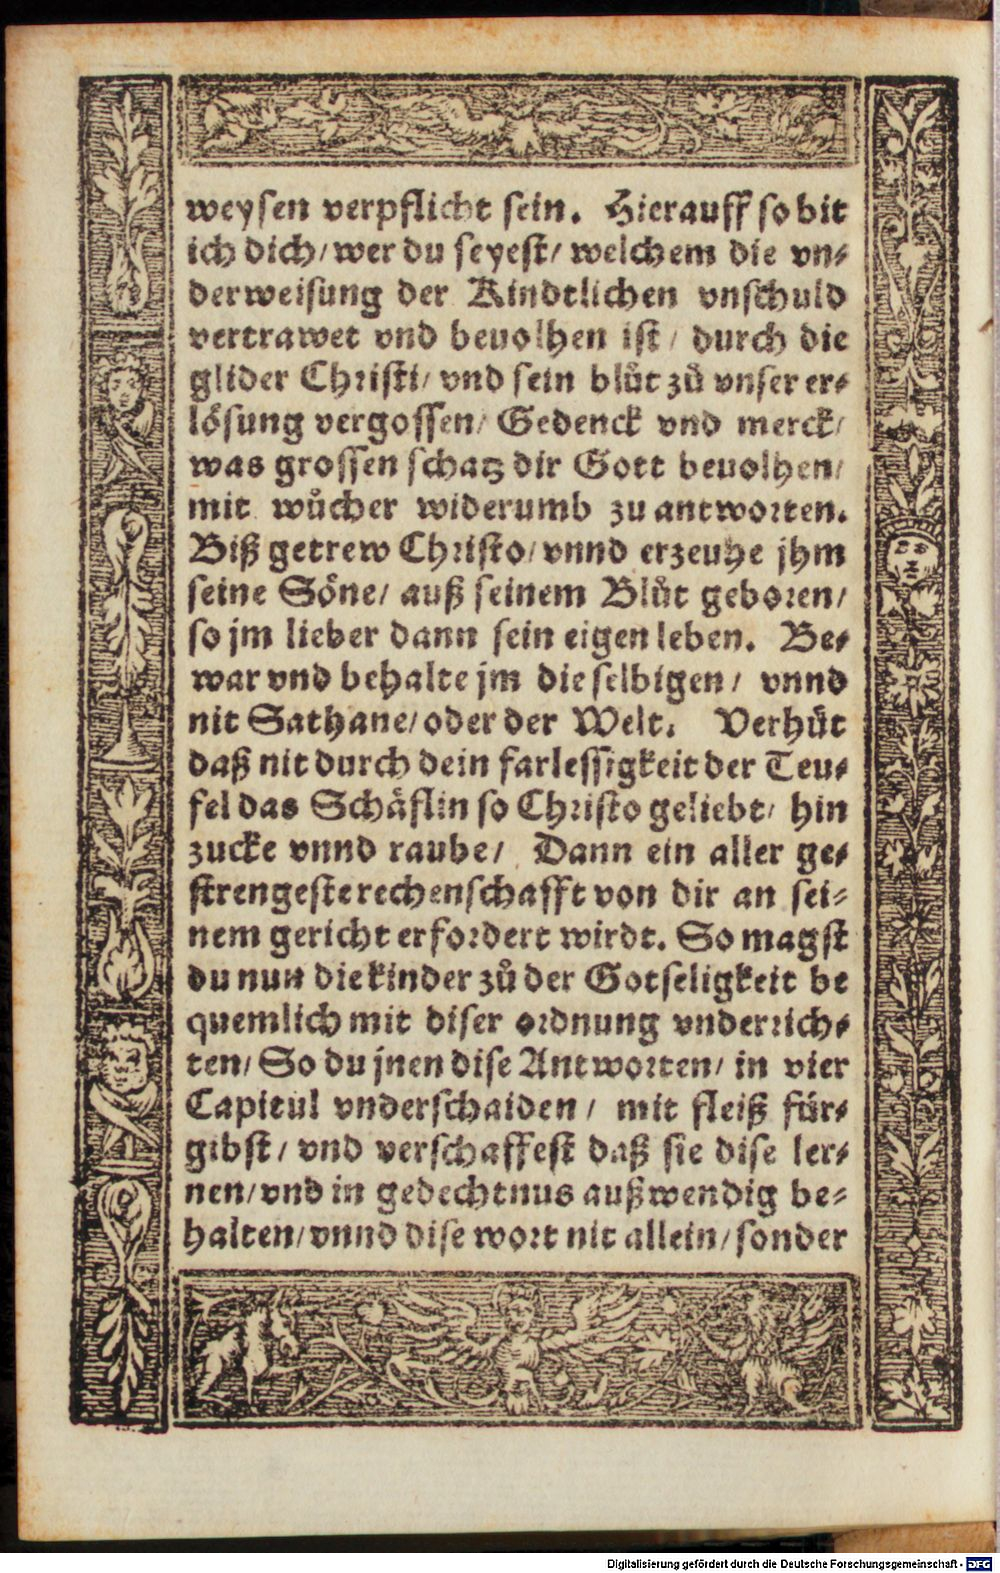 weysen verpflicht sein. Hierauff so bit
ich dich/ wer du seyest/ welchem die vn⸗
derweisung der Kindtlichen vnschuld
vertrawet vnd beuolhen ist/ durch die
glider Christi/ vnd sein blůt zů vnser er⸗
lösung vergossen/ Gedenck vnd merck/
was grossen schatz dir Gott beuolhen/
mit wůcher widerumb zu antworten.
Biß getrew Christo/ vnnd erzeuhe jhm
seine Söne/ auß seinem Blůt geboren/
so jm lieber dann sein eigen leben. Be⸗
war vnd behalte jm die selbigen/ vnnd
nit Sathane/ oder der Welt. Verhůt
daß nit durch dein farlessigkeit der Teu⸗
fel das Schäflin so Christo geliebt/ hin
zucke vnnd raube/ Dann ein aller ge⸗
strengeste rechenschafft von dir an sei⸗
nem gericht erfordert wirdt. So magst
du nun die kinder zů der Gotseligkeit be
quemlich mit diser ordnung vnderrich⸗
ten/ So du jnen dise Antworten/ in vier
Capitul vnderschaiden/ mit fleiß für⸗
gibst/ vnd verschaffest daß sie dise ler⸗
nen/ vnd in gedechtnus außwendig be⸗
halten/ vnnd dise wort nit allein/ sonder
Digitalisierung gefördert durch die Deutsche Forschungsgemeinschaft - DFG